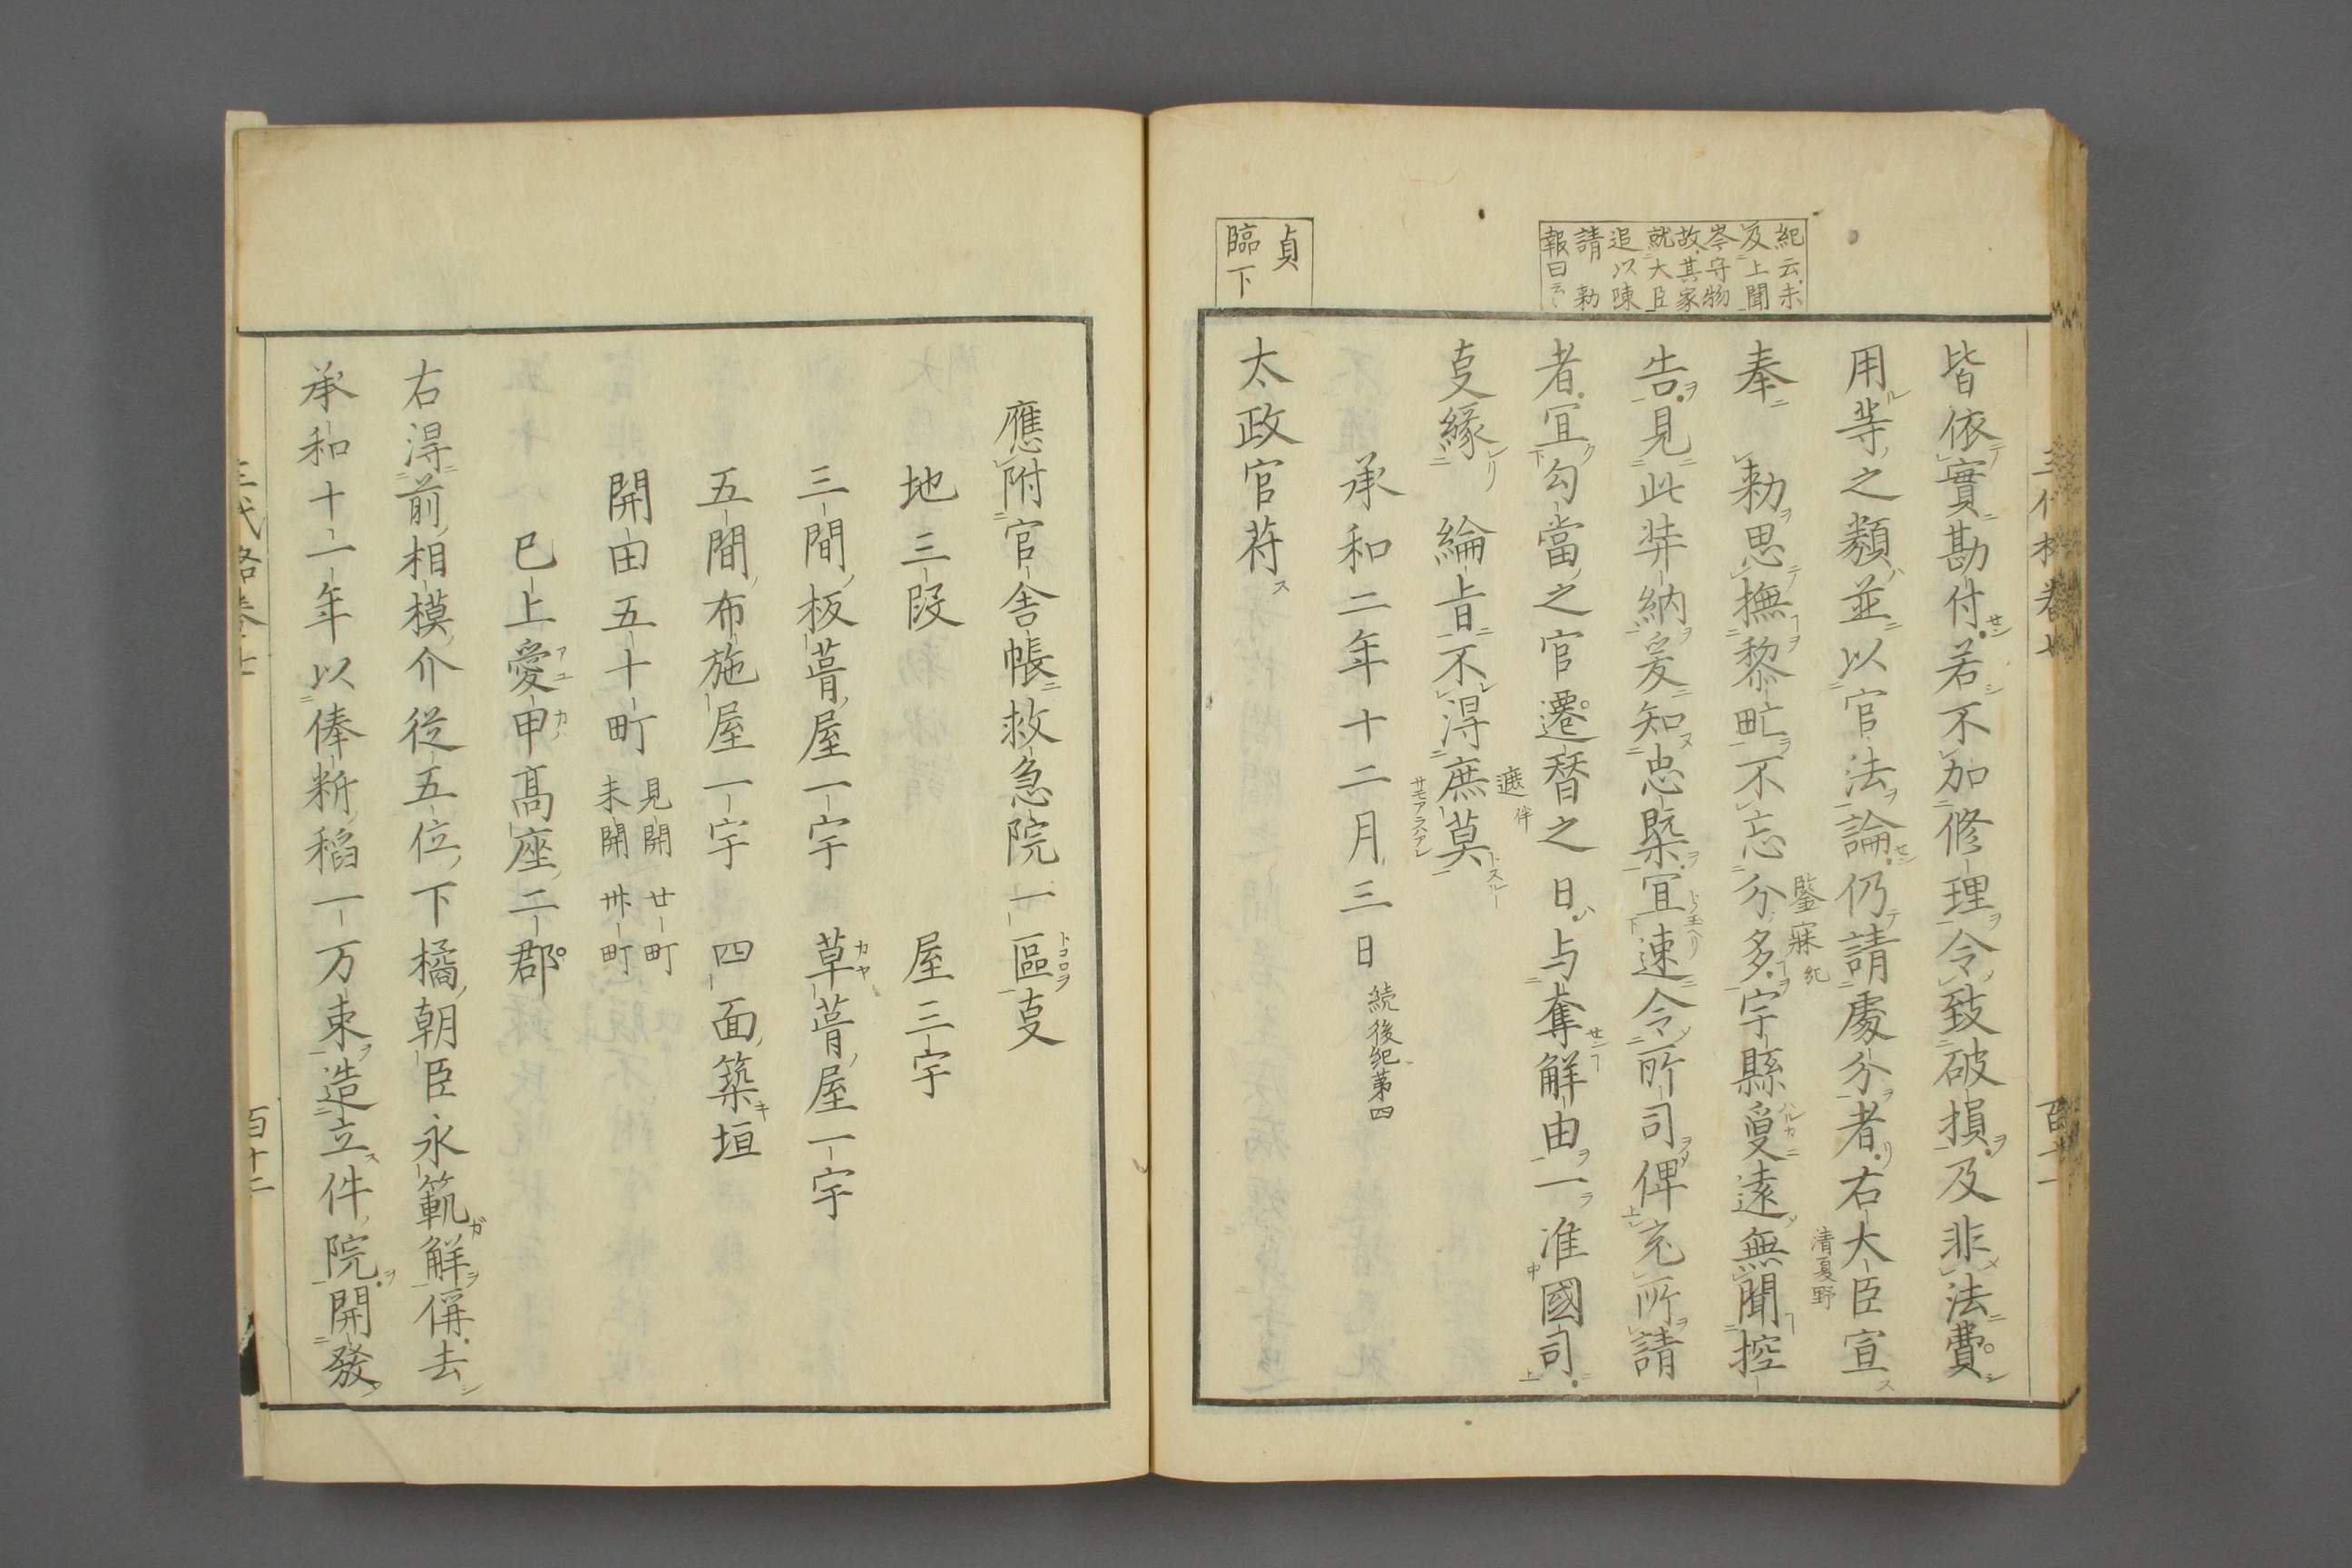 紀云未
及上聞
岑守物
故其家
就大臣
追以陳
請 勅
報曰云〻
皆依實勘付若不加修理令致破損及非法費
用等之類並以官法論仍請處分者右大臣宣
清夏野
奉 勅思撫黎甿不忘分多宇縣敻遠無聞控
鑒寐紀
告見此弉納爰知忠槩宜速令所司俾充所請
者宜勾當之官遷替之日与奪解由一准國司
叓緣 綸旨不淂庶莫
遮 件
サモアラスアレ
承和二年十二月三日 続後紀第四
貞
臨下
太政官苻
應附官舎帳救急院一區叓
地三段 屋三宇
三間板葺屋一宇 草葺屋一宇
五間布施屋一宇 四面築垣
開田五十町 見開 廿町
未開 卅町
已上愛甲髙座二郡
右淂前相模介從五位下橘朝臣永範解偁去
承和十一年以俸断稻一万束造立件院開發
百十二